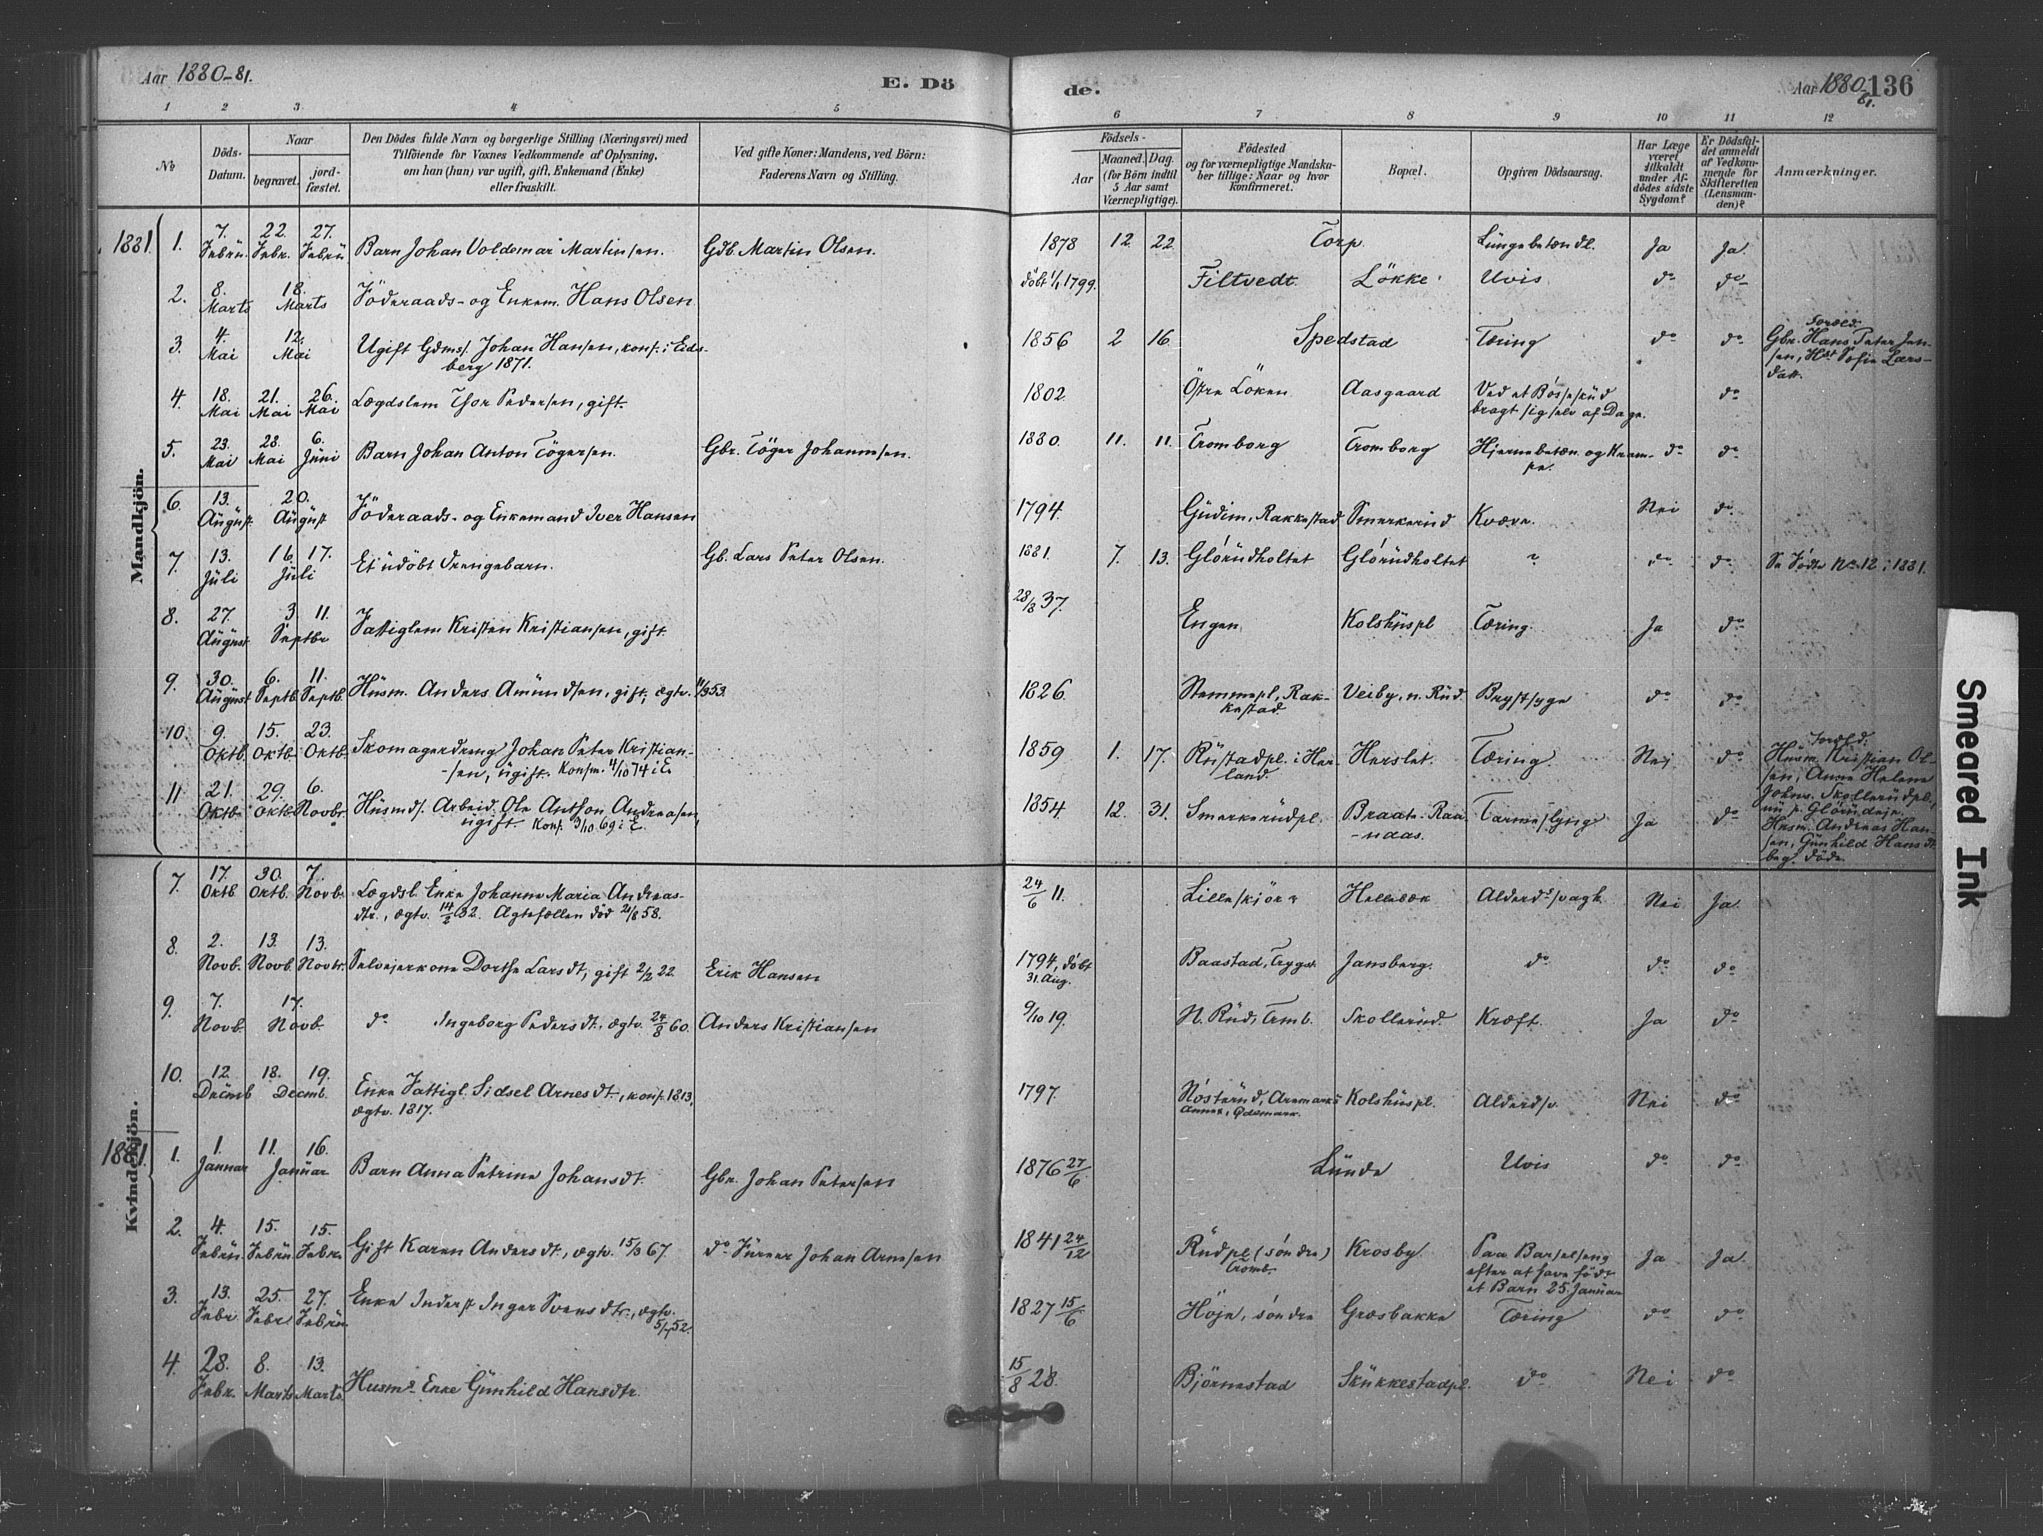 Aar 1880-81. E. Dö de. Aar 1880-81. 136
1 2 3. 4 5 6 7 8 9 10 11 12
No Döds-Datum. Naar begravet. jord-fæstet. Den Dödes fulde Navn og borgerlige Stilling (Næringsvei) med Tilföiende for Voxnes Vedkommende af Oplysning, om han (hun) var ugift, gift, Enkemand (Enke) eller fraskilt. Ved gifte Koner: Mandens, ved Börn: Faderens Navn og Stilling. Födsels- Aar Maaned. Dag. (for Börn indtil 5 Aar samt Værnepligtige). Födested og for værnepligtige Mandskaber tillige: Naar og hvor konfirmeret. Bopæl. Opgiven Dödsaarsag. Har Læge været tilkaldt under Afdödes sidste Sygdom? Er Dödsfaldet anmeldt af Vedkommende for Skifteretten (Lensmanden)? Anmærkninger.
Mandkjön.
1881. 1. 7. Febru. 22. Febr. 27. Febru Barn Johan Voldemar Martinsen. Gdb. Martin Olsen. 1878 12 22 Torp. Lungebetændl. Ja Ja.
2. 8. Marts 18. Marts Föderaads- og Enkem. Hans Olsen döbt 1/1 1799. Filtvedt. Lökke Uvis do do
3. 4. Mai 12. Mai Ugift Gdms. Johan Hansen, konf. i Eidsberg 1871. 1856 2 16 Spedstad Tæring do do Foræld. Gbr. Hans Peter Jensen, Hst Sofie Larsdatt.
4. 18. Mai 21. Mai 26. Mai Lægdslem Thor Pedersen, gift. 1802. Östre Löken Aasgaard Ved et Bösseskud bragt sig selv af Dage. do
5. 23. Mai 28. Mai 6. Juni Barn Johan Anton Tögersen. Gbr. Töger Johannesen. 1880. 11. 11. Tromborg Tromborg Hjernebetæn. og Krampe. do do
6. 13. August 20. August Föderaads- og Enkemand Iver Hansen 1794. Gudim, Rakkestad Smerkerud Kvære. Nei do
7. 13. Juli 16. 17. Juli Et udöbt Drengebarn. Gb. Lars Peter Olsen. 1881. 7. 13. Glörudholtet Glörudholtet ? do do Se Födte No 12 i 1881.
8. 27. August 3 11. Septbr Fattiglem Kristen Kristiansen, gift. 28/8 37. Engen Kolshuspl Tæring. Ja do
9. 30. August 6. Septb. 11. Septb. Husm. Anders Amundsen, gift, ægtv. 11/3 53. 1826. Stemmepl, Rakkestad Veiby, n. Rud. Brystsyge do do
10. 9. Oktb. 15. Oktb. 23. Oktb. Skomagerdreng Johan Peter Kristiansen, ugift. Konfm. 4/10 74 i E. 1859 1. 17. Rustadpl. i Herland. Herslet. Tæring. Nej do Foræld. Husm. Kristian Olsen, Anne Helene Johns. Skollerudpl., nu p. Glörudeje.
11 21. Oktb. 29. Oktb. 6. Novbr. Husmds. Arbeid. Ole Anthon Andreasen, ugift. Konf. 3/10 69 i E. 1854 12. 31. Smerkerudpl. Braatn. Raanaas. Tarmeslyng Ja do Husm. Andreas Hansen, Gunhild Hansdt. beg. döde.
Kvindekjön.
7. 17. Oktb. 30. Oktb. 7. Novbr. Lægdsl. Enke Johanne Maria Andreasdtr., ægtv. 14/8 32. Ægtefællen död 21/8 58. 24/6 11. Lilleskjör Hellebæk Alderdsvagh. Nei Ja.
8. 2. Novb. 13. Novb. 13. Novbr. Selvejerkone Dorthe Larsdt, gift 2/2 22 Erik Hansen 1794, döbt 31. Aug. Baastad, Trygst. Jansberg. do do do
9. 7. Novb. 17. Novb. do Ingeborg Pedersdt, ægtv. 24/8 60. Anders Kristiansen 9/10 19. N. Rud, Tromb. Skollerud. Kræft. Ja do
10. 12. Decmb 18. 19. Decmb. Enke Fattigl. Sidsel Arnesdt., konf. 1813, ægtv. 1817. 1797. Nösterud, Aremarks Annex, Ödemark. Kolshuspl. Alderdsv. Nei do
1881. 1. 1. Januar 11. 16. Januar Barn Anna Petrine Johansdt. Gbr. Johan Petersen 1876 27/6 Lunde Uvis do do
2. 4. Febru. 15. Febru 15. Febru Gift Karen Andersdt., ægtv. 15/3 67. do Johan Arnesen 1841 24/12 Rudpl (söndre) Tromb. Krosby. Paa Barselseng efter at have föde et Barn 25. Januar Ja Ja.
3. 13. Febr 25. Febr 27. Febru Enke Inderst Inger Svensdtr., ægtv. 5/1 52. 1827 15/6 Höje, söndre Græsbakke Tæring do do
4. 28. Febr. 8. Marts 13. Marts. Husms. Enke Gunhild Hansdtr. 15/8 28. Björnestad Skukkestadpl. do Nei do
Smeared Ink